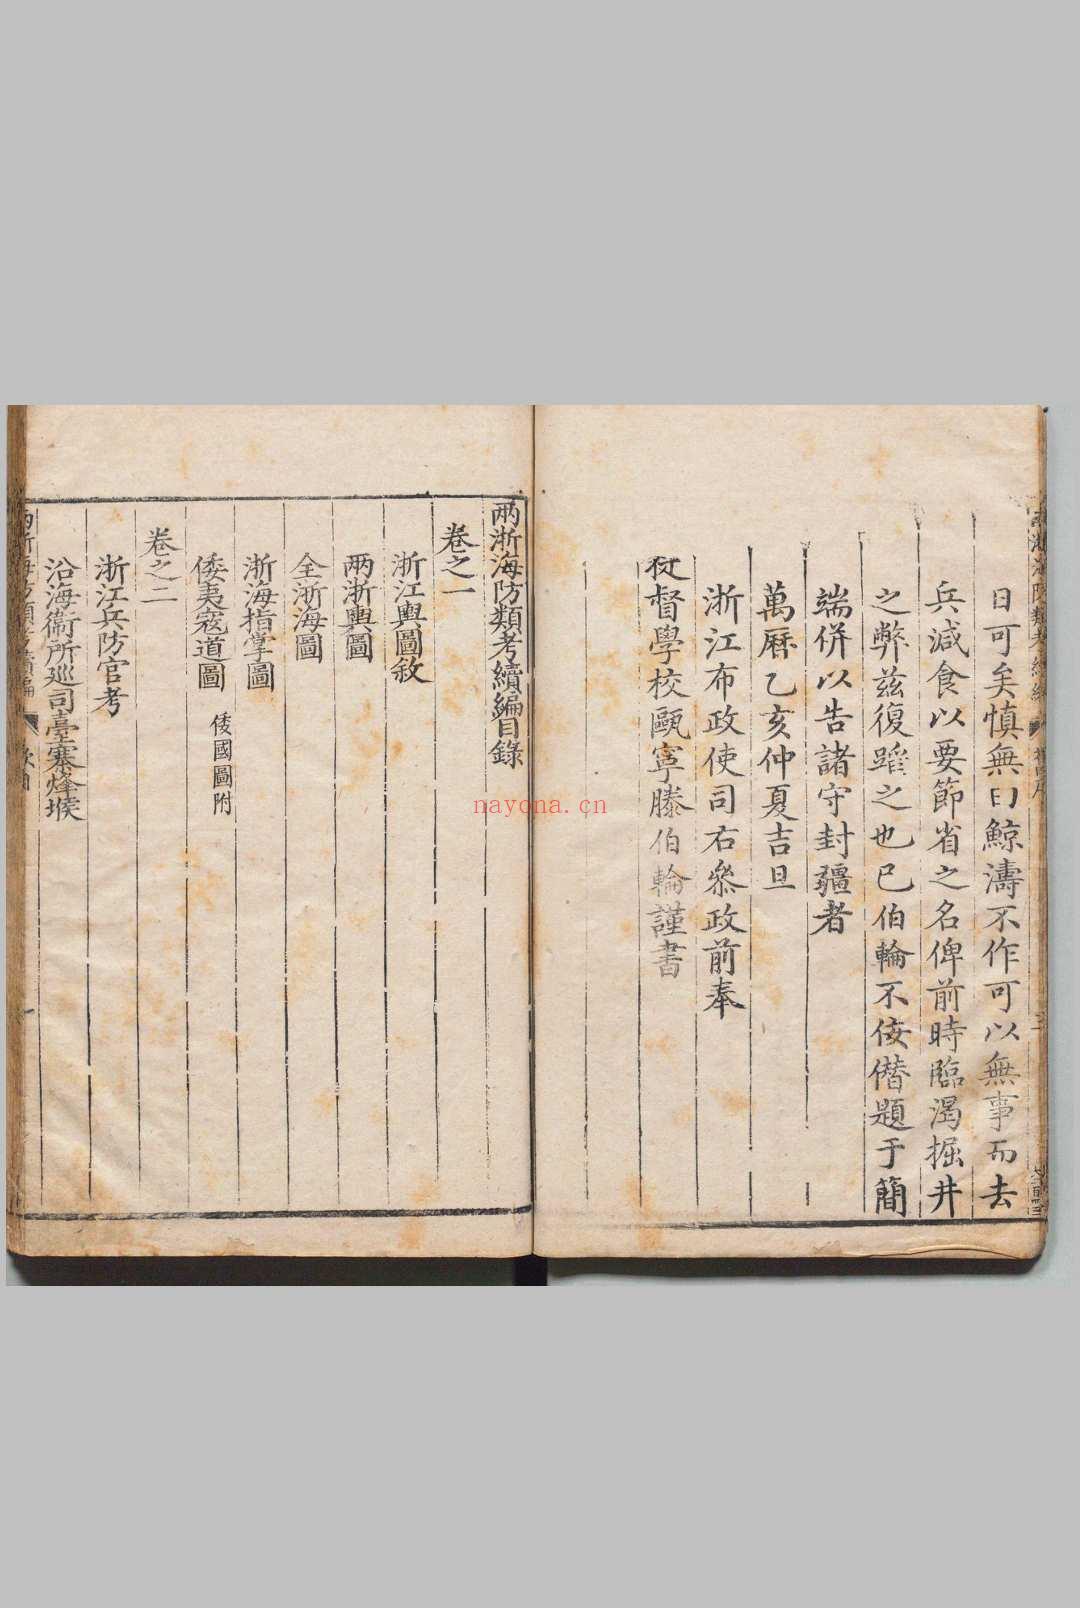 日可矣慎無曰鯨濤不作可以無事而去
兵減食以要節省之名俾前時臨渴掘井
之弊茲復蹈之也已伯輪不佞僭題于簡
端併以告諸守封疆者
萬曆乙亥仲夏吉旦
浙江布政使司右叅政前奉
督學校甌寧滕伯輪謹書
兩浙海防類考續編目錄
卷之一
浙江輿圖敘
兩浙輿圖
全浙海圖
浙海指掌圖
倭夷寇道圖 倭國圖附
卷之二
浙江兵防官考
沿海衞所巡司臺寨烽堠
nayona.cn